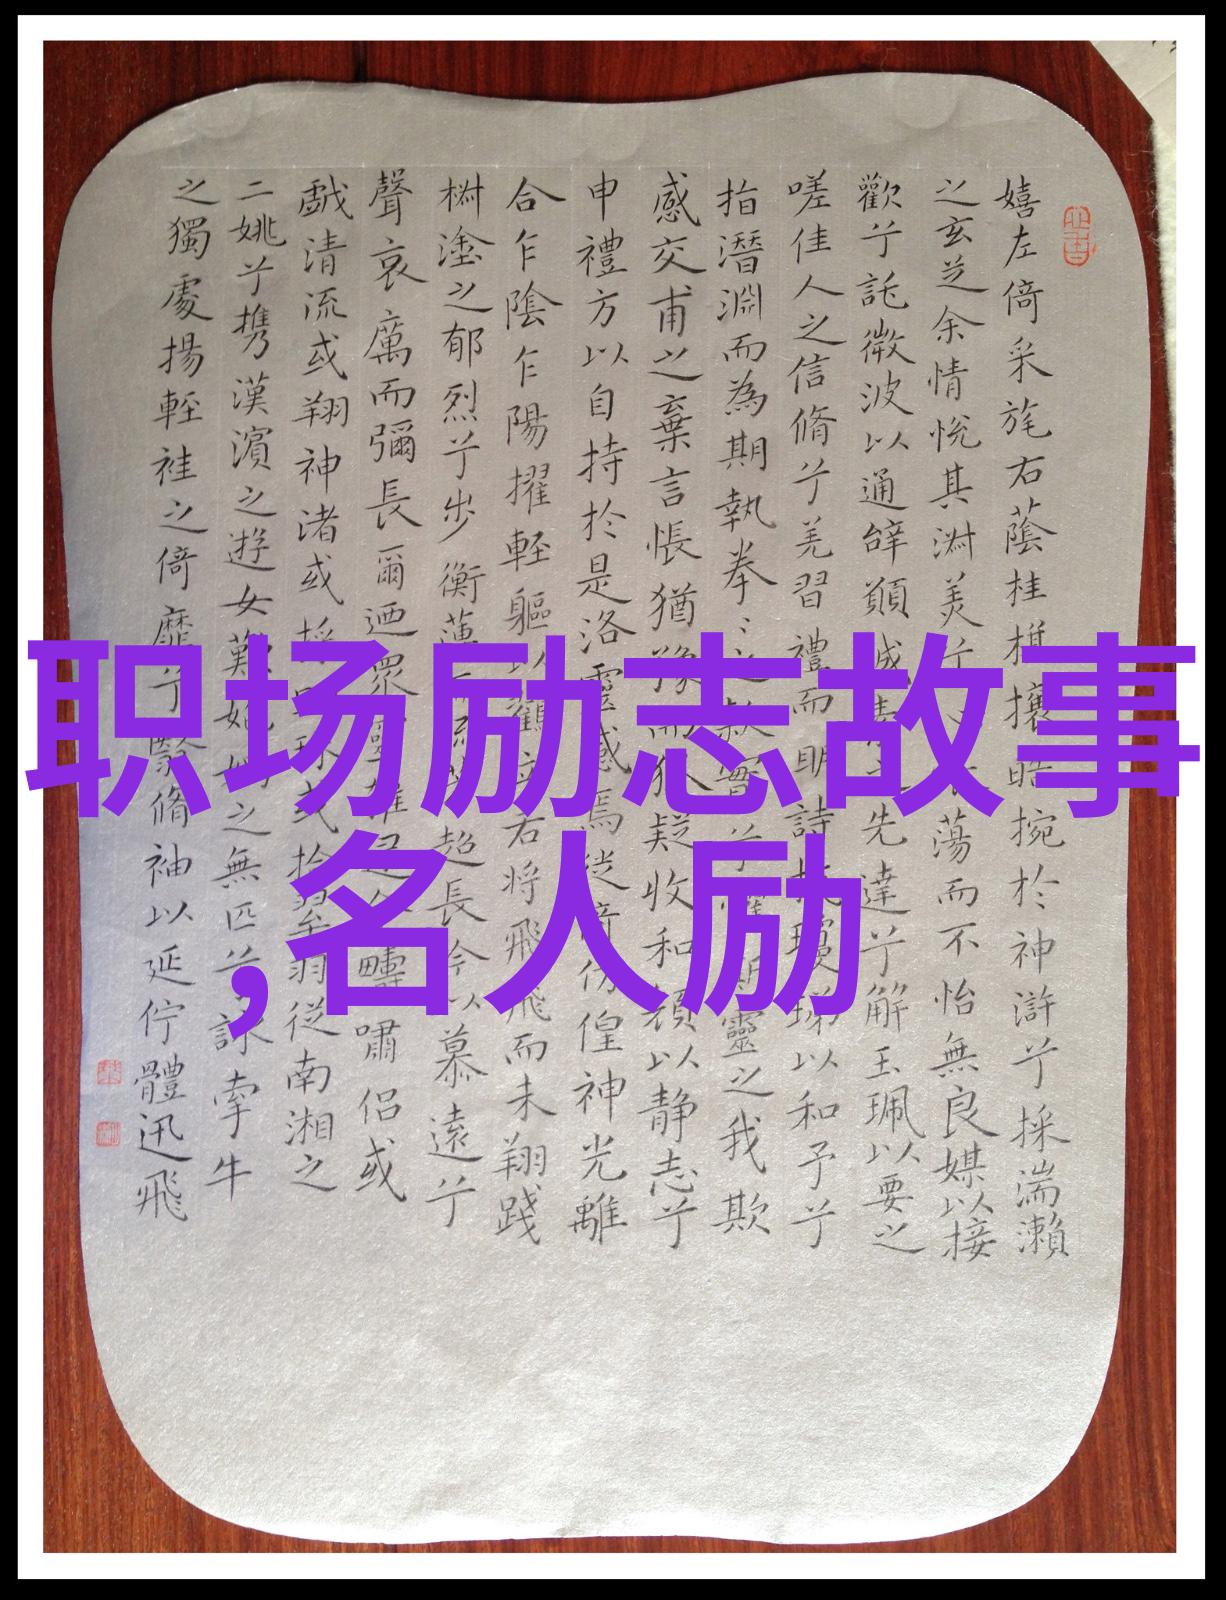 嬉左倚采旄右蔭桂旗攘皓捥於神滸兮採湍瀨
之玄芝余情悅其淋美兮蕩而不怡無良媒以接
歡兮託微波以通辭願誠素之先達兮解玉珮以要之
嗟佳人之信脩兮羌習禮而明詩抗瓊珶以和予兮
指潛淵而為期執拳〻之款實兮懼斯靈之我欺
感交甫之棄言悵猶豫而狐疑收和顏以静志兮
申禮方以自持於是洛靈感焉徙倚仿徨神光離
合乍陰乍陽擢輕軀以鶴立若將飛飛而未翔踐
樹塗之郁烈兮步衡薄而流芳超長吟以慕遠兮
聲哀厲而彌長爾迺眾靈雜遝命疇嘯侶或
戲清流或翔神渚或採明珠或拾翠羽從南湘之
二姚兮攜漢濱之遊女歎匏媧之無匹兮詠牽牛
之獨處揚輕袿之倚靡兮翳脩袖以延佇體迅飛
职场励志故事
,名人励